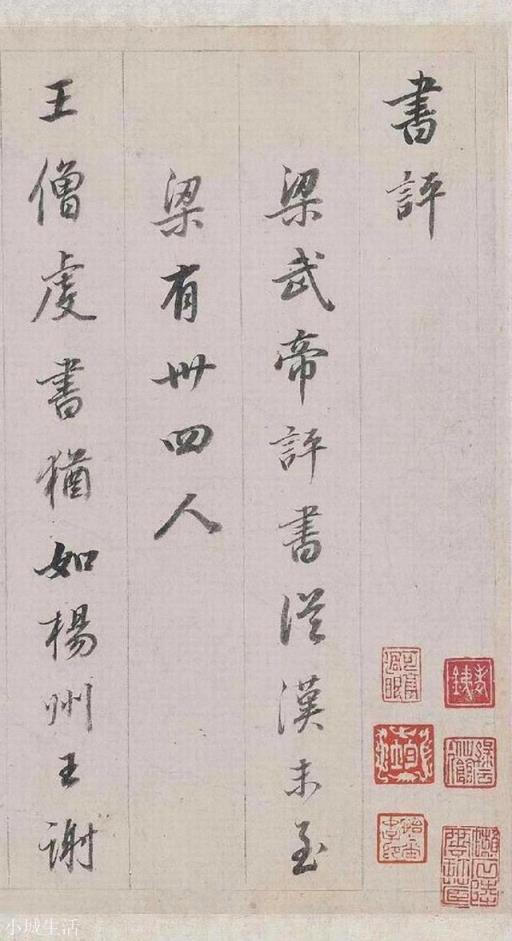 書評
梁武帝評書從漢末至
梁有卅四人
王僧虔書猶如楊州王謝
小城生活